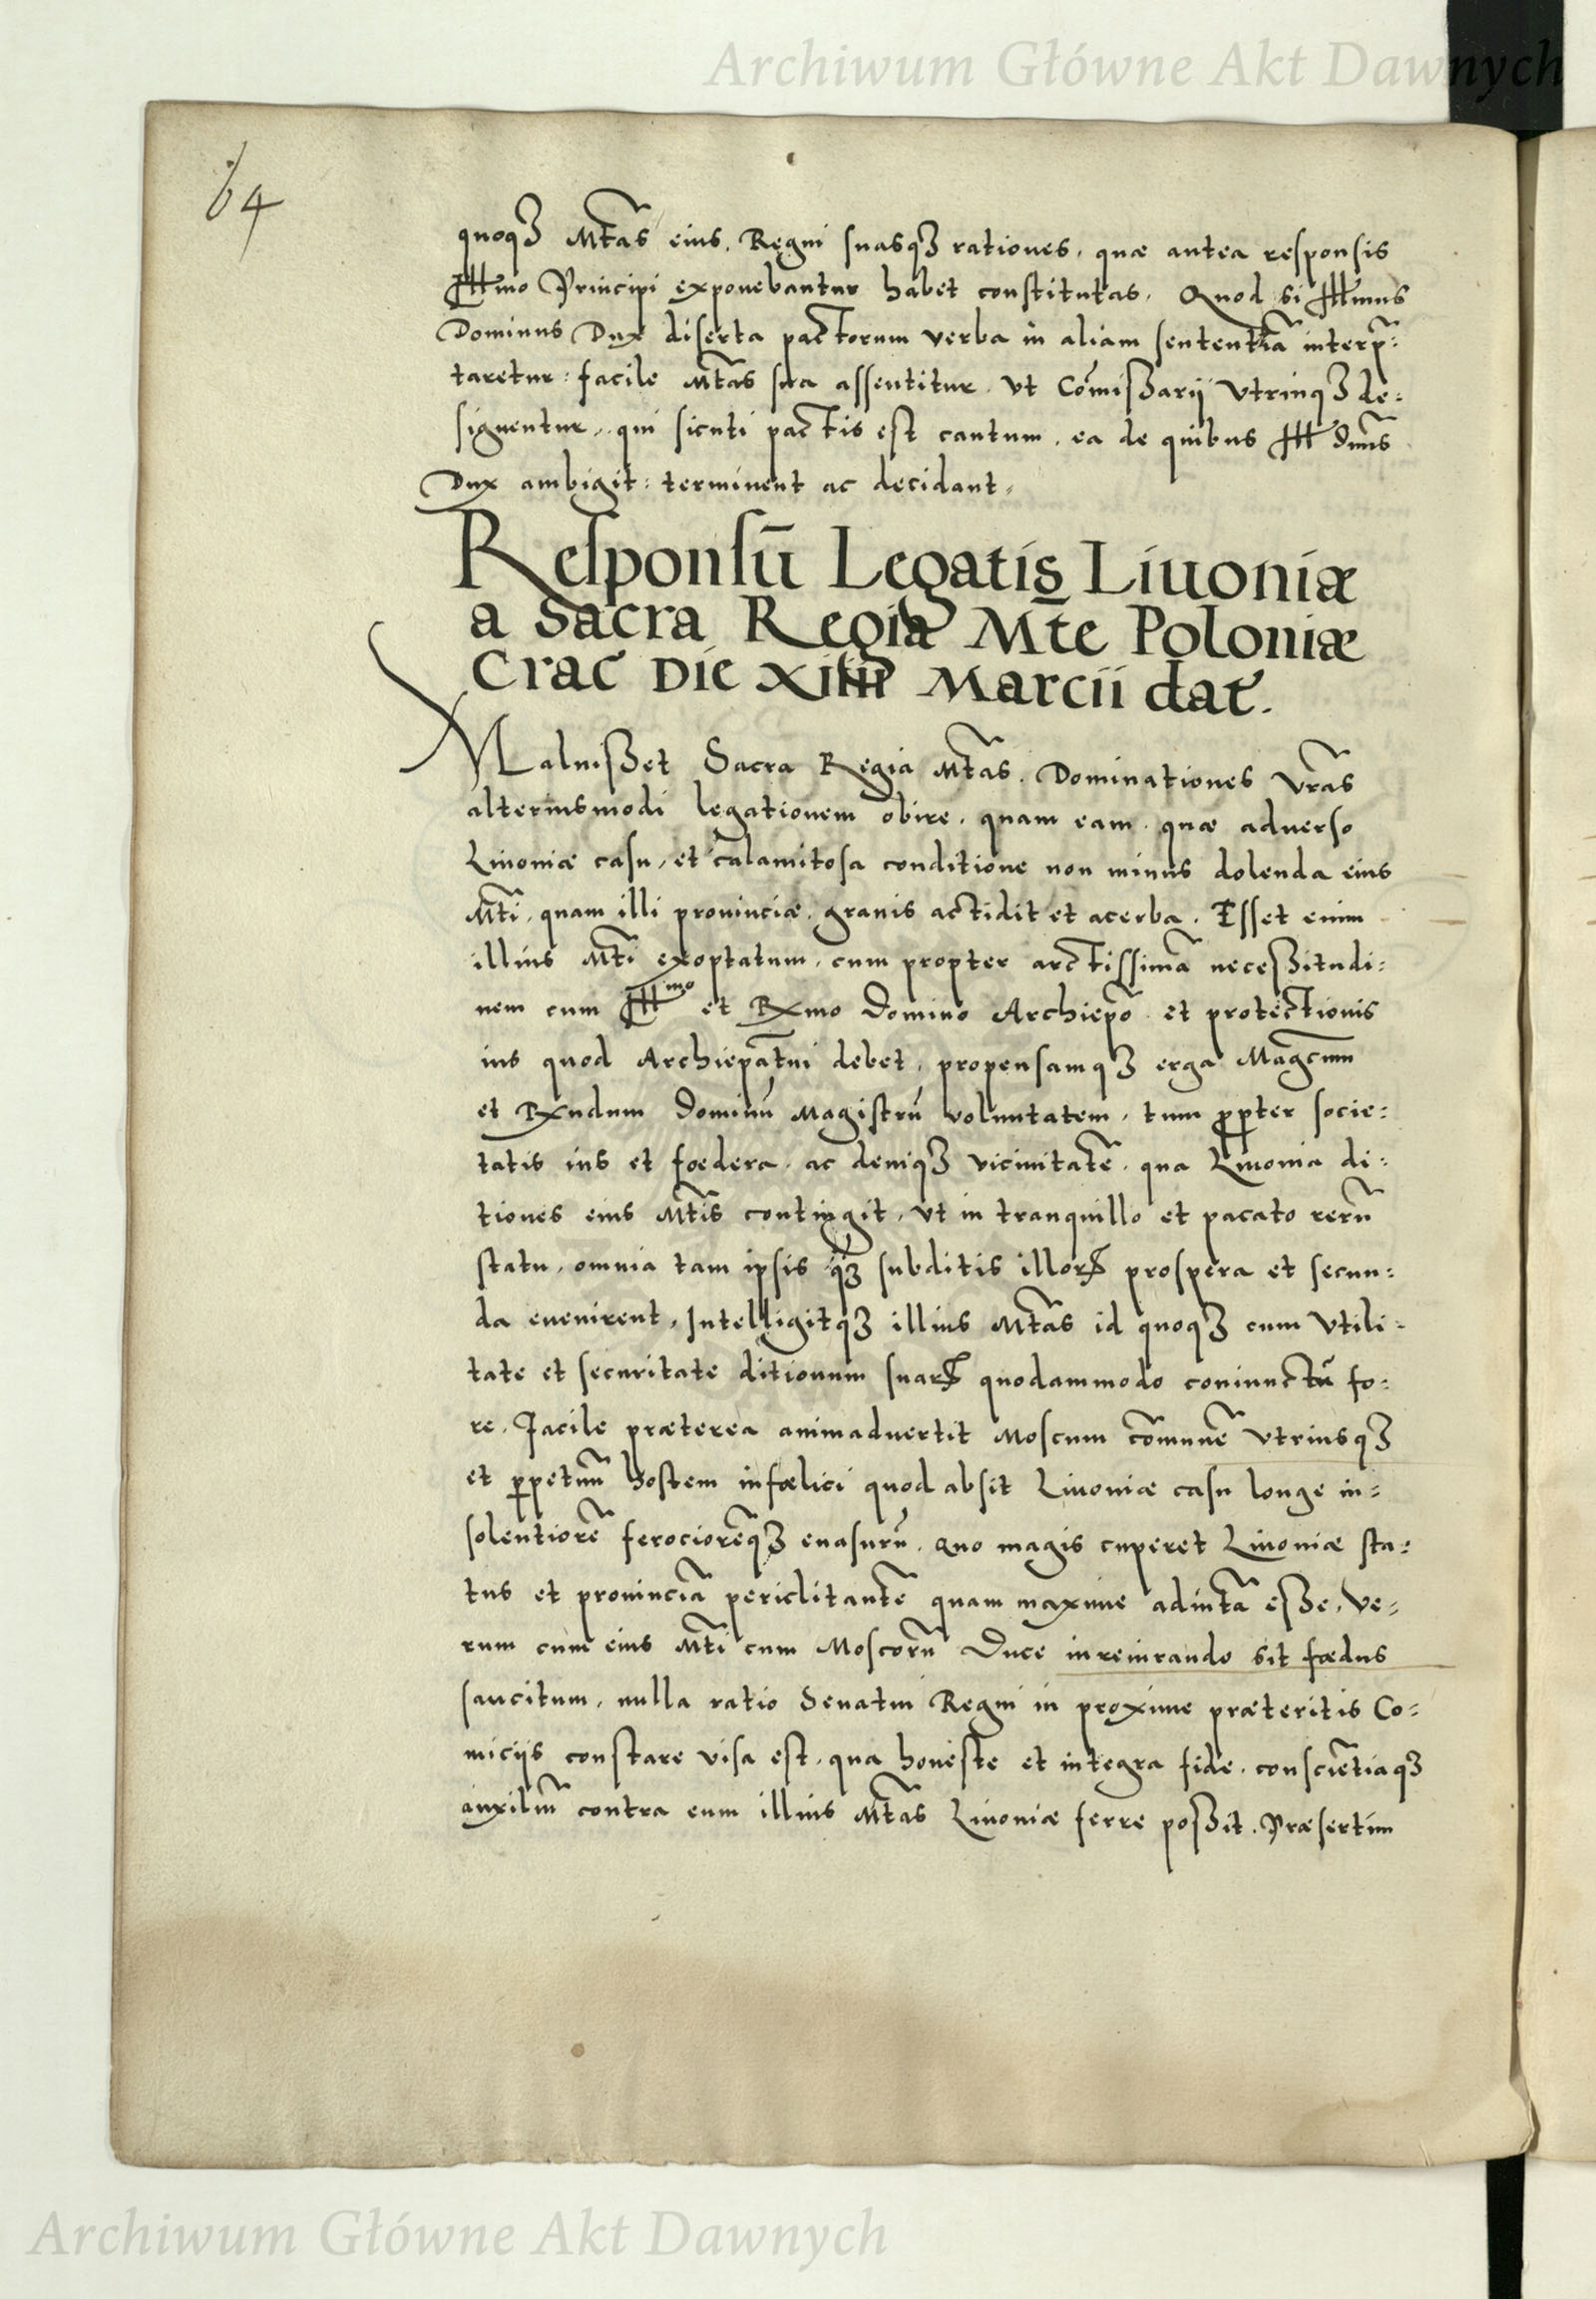 Archiwum Główne Akt Dawnych
64
quoqȝ Mtãs eius, Regni suasqȝ rationes, quæ antea responsis
Illmo Principi exponebantur habet constitutas. Quod si Illmus
Dominus Dux diserta pactorum verba in aliam sententiã interp̃:
taretur: facile Mtãs sua assentitur. Vt Com̃issarij Vtrinqȝ de:
signentur, qui sicuti pactis est cautum, ea de quibus Ill Dnũs
Dux ambigit: terminent ac decidant.
Responsũ Legatis Liuoniæ
a Sacra Regia Mt̃e Poloniæ
Crac̃ Die xiiii Marcii dat̃.
Maluisset Sacra Regia Mtãs. Dominationes Vrãs
alteriusmodi legationem obire, quam eam, quæ aduerso
Liuoniæ casu, et calamitosa conditione non minus dolenda eius
Mtĩ, quam illi prouinciæ, grauis actidit et acerba. Esset enim
illius Mtĩ exoptatum, cum propter arctissimã necessitudi:
nem cum Illmo et Rxmo Domino Archiepõ et protectionis
ius quod Archiepãtui debet, propensamqȝ erga Magcũm
et Rxndum Dominũ Magistrũ voluntatem, tum ꝓpter socie:
tatis ius et fœdera, ac deniqȝ vicinitatẽ, qua Liuonia di:
tiones eius Mtĩs contingit, Vt in tranquillo et pacato rerũ
statu, omnia tam ipsis qȝ subditis illorꝝ prospera et secun:
da euenirent, Intelligitqȝ illius Mtãs id quoqȝ cum Vtili:
tate et securitate ditionum suarꝝ quodammodo coniunctũ fo:
re. Facile præterea animaduertit Moscum com̃unẽ Vtriusqȝ
et ꝑpetuũ hostem infœlici quod absit Liuoniæ casu longe in:
solentiorẽ ferociorẽqȝ euasurũ. Quo magis cuperet Liuoniæ sta:
tus et prouinciã periclitantẽ quam maxime adiutã esse. Ve:
rum cum eius Mtĩ cum Moscorũ Duce iureiurando sit fœdus
sancitum, nulla ratio Senatui Regni in proxime præteritis Co:
miciis constare visa est, qua honeste et integra fide, consciẽtiaqȝ
auxiliũ contra eum illius Mtãs Liuoniæ ferre possit. Præsertim
Archiwum Główne Akt Dawnych